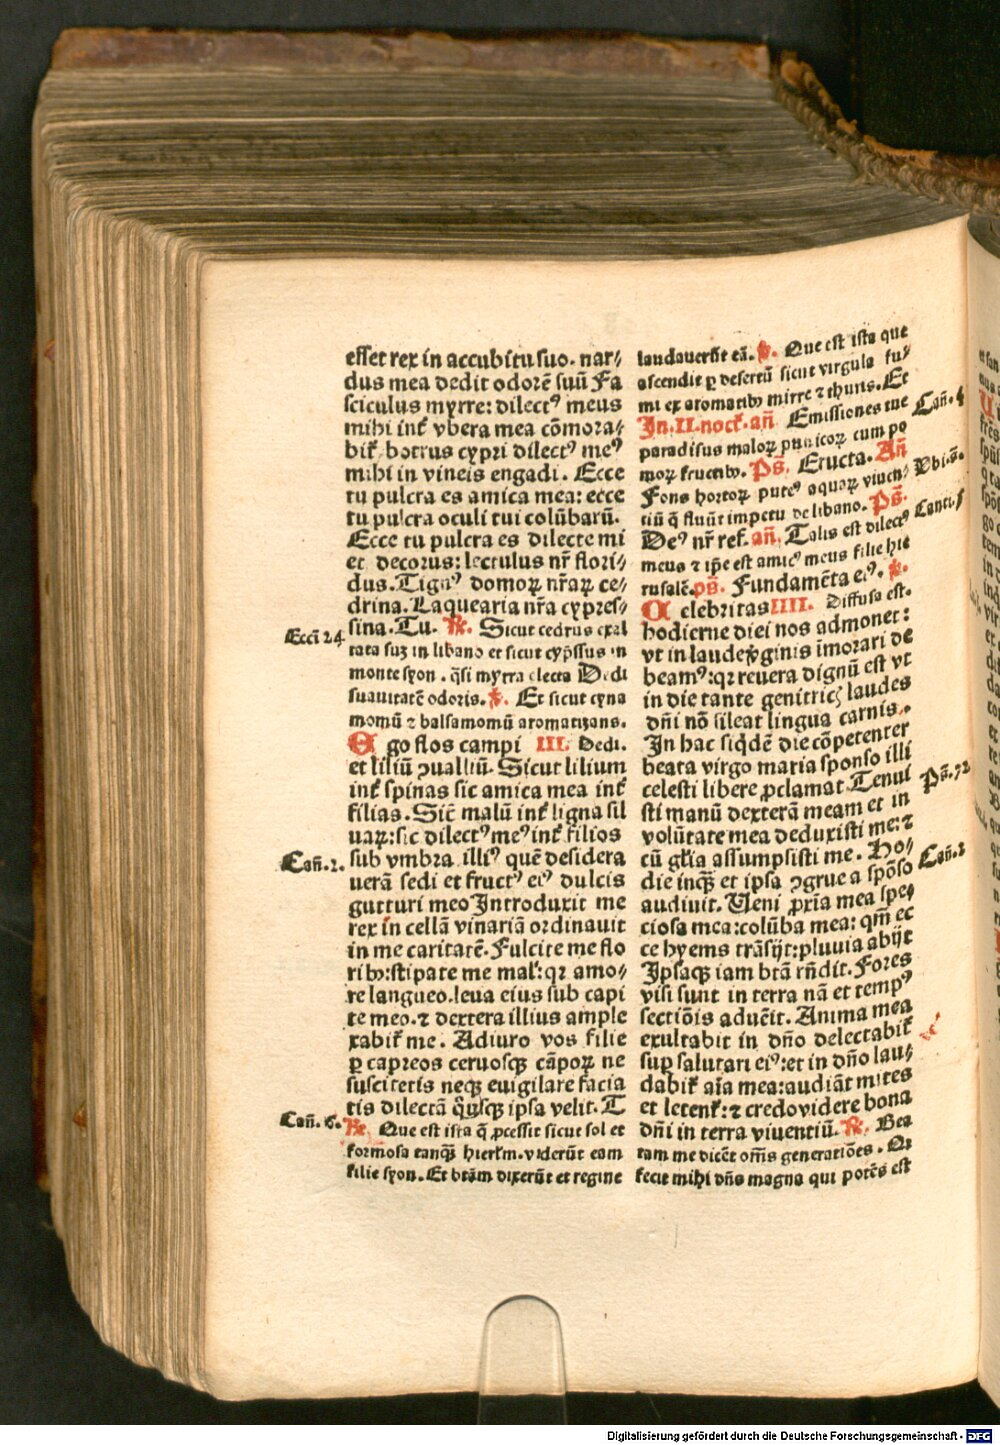 esset rex in accubitu suo. nar⸗
dus mea dedit odorē suū Fa
sciculus myrre: dilectꝰ meus
mihi int̄ vbera mea cōmora⸗
bit̄ botrus cypri dilectꝰ meꝰ
mihi in vineis engadi. Ecce
tu pulcra es amica mea: ecce
tu pulcra oculi tui colūbarū.
Ecce tu pulcra es dilecte mi
et decorus: lectulus nr̄ flori⸗
dus. Tignaꝰ domoꝝ nr̄aꝝ ce⸗
drina. Laquearia nr̄a cypres⸗
sina. Tu. ℟. Sicut cedrus exal
Ecci 24.
tata suꝫ in libano et sicut cyp̄ssus in
monte syon. q̄si myrra electa Dedi
suauitatē odoris. ℣. Et sicut cyna
momū ⁊ balsamomū aromatizans.
EGo flos campi III. Dedi.
et liliū ꝯualliū. Sicut lilium
int̄ spinas sic amica mea int̄
filias. Sic̄ malū int̄ ligna sil
uaꝝ: sic dilectꝰ meꝰ int̄ filios
sub vmbra illiꝰ quē desidera
Cañ. 2.
uerā sedi et fructꝰ eiꝰ dulcis
gutturi meo Introduxit me
rex in cellā vinariā ordinauit
in me caritatē. Fulcite me flo
ribꝫ: stipate me mal̄: qꝛ amo⸗
re langueo. leua eius sub capi
te meo. ⁊ dextera illius ample
xabit̄ me. Adiuro vos filie
ꝑ capreos ceruosqꝫ cāpoꝝ ne
suscitetis neqꝫ euigilare facia
tis dilectā q̄usqꝫ ipsa velit. T
Cañ. 6. ℟. Que est ista q̄ ꝓcessit sicut sol et
formosa tanqꝫ̄ hierl̄m. viderūt eam
filie syon. Et btām dixerūt et regine
laudauerūt eā. ℣. Que est ista que
ascendit ꝑ desertū sicut virgula fu⸗
mi ex aromatibꝫ mirre ⁊ thuris. Et
In. II. noct̄. añ Emissiones tue
Cañ. 4
paradisus maloꝝ punicoꝝ cum po
moꝝ fructibꝫ. Pš. Eructa. Añ
Fons hortoꝝ puteꝰ aquaꝝ viuen⸗
Vbi. š.
tiū q̄ fluūt impetu de libano. Pš.
Deꝰ nr̄ ref. añ. Talis est dilectꝰ
Canti. 5
meus ⁊ ip̄e est amicꝰ meus filie hie
rusalē. pš. Fundamēta eiꝰ. ℣.
CElebritas IIII. Diffusa est.
hodierne diei nos admonet:
vt in laude v̓ginis īmorari de
beamꝰ: qꝛ reuera dignū est vt
in die tante genitricꝭ laudes
dn̄i nō sileat lingua carnis.
In hac siq̄dē die cōpetenter
beata virgo maria sponso illi
celesti libere ꝓclamat. Tenui
Pš. 72
sti manū dexterā meam et in
volūtate mea deduxisti me: ⁊
cū gl̄ia assumpsisti me. Ho⸗
die inqꝫ̄ et ipsa ꝯgrue a spōso
Cañ. 2
audiuit. Ueni ꝓxīa mea spe⸗
ciosa mea: colūba mea: qm̄ ec
ce hyems trāsijt: pluuia abijt
Ipsaqꝫ iam btā rn̄dit. Fores
visi sunt in terra nr̄ā et tempꝰ
sectiōis aduēit. Anima mea
exultabit in dn̄o delectabit̄
suꝑ salutari eiꝰ: et in dn̄o lau⸗
dabit̄ aīa mea: audiāt mites
et letent̄: ⁊ credo videre bona
dn̄i in terra viuentiū. ℟. Bea
tam me dicēt om̄s generatiōes. Qꝛ
fecit mihi dn̄s magna qui potēs est
Digitalisierung gefördert durch die Deutsche Forschungsgemeinschaft - DFG